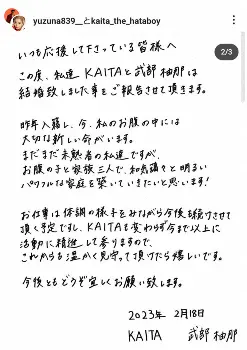 yuzuna839__とkaita_the_hataboy
2/3
いつも応援して下さっている皆様へ
この度、私達 KAITAと武部柚那は
結婚致しました事をご報告させて頂きます。
昨年入籍し、今、私のお腹の中には
大切な新しい命がいます。
まだまだ未熟者の私達ですが、
お腹の子と家族三人で、和気藹々と明るい
パワフルな家庭を築いていきたいと思います!
お仕事は体調の様子をみながら今後も続けさせて
頂く予定ですし、KAITAも変わらず今まで以上に
活動に精進して参りますので、
これからも温かく見守って頂けたら嬉しいです。
今後ともどうぞ宜しくお願い致します。
2023年 2月18日
KAITA 武部 柚那